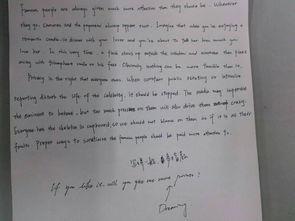 Famous people are always given much more attention than they should be. Wherever
they go, cameras and the paparazzi always appear. Imagine that when you're enjoying a
romantic candle-lit dinner with your lover and you're about to tell her how much you
love her. In this very time, a flash shows up outside the window and someone
away with triumphant smile on his face. Obviously nothing can be more terrible than it.
Privacy is the right that everyone owns. When constant public or intensive
reporting disturb the life of the celebrity, it should be stopped. The media may supervise
the to behave, but too much pressure on them will also drive them crazy.
Everyone has the skeleton in cupboard, so we should not blame on them as if it is all their
faults. Proper ways to scrutinize the famous people should be paid more attention to.
If you like it, will you give me more
Dreaming